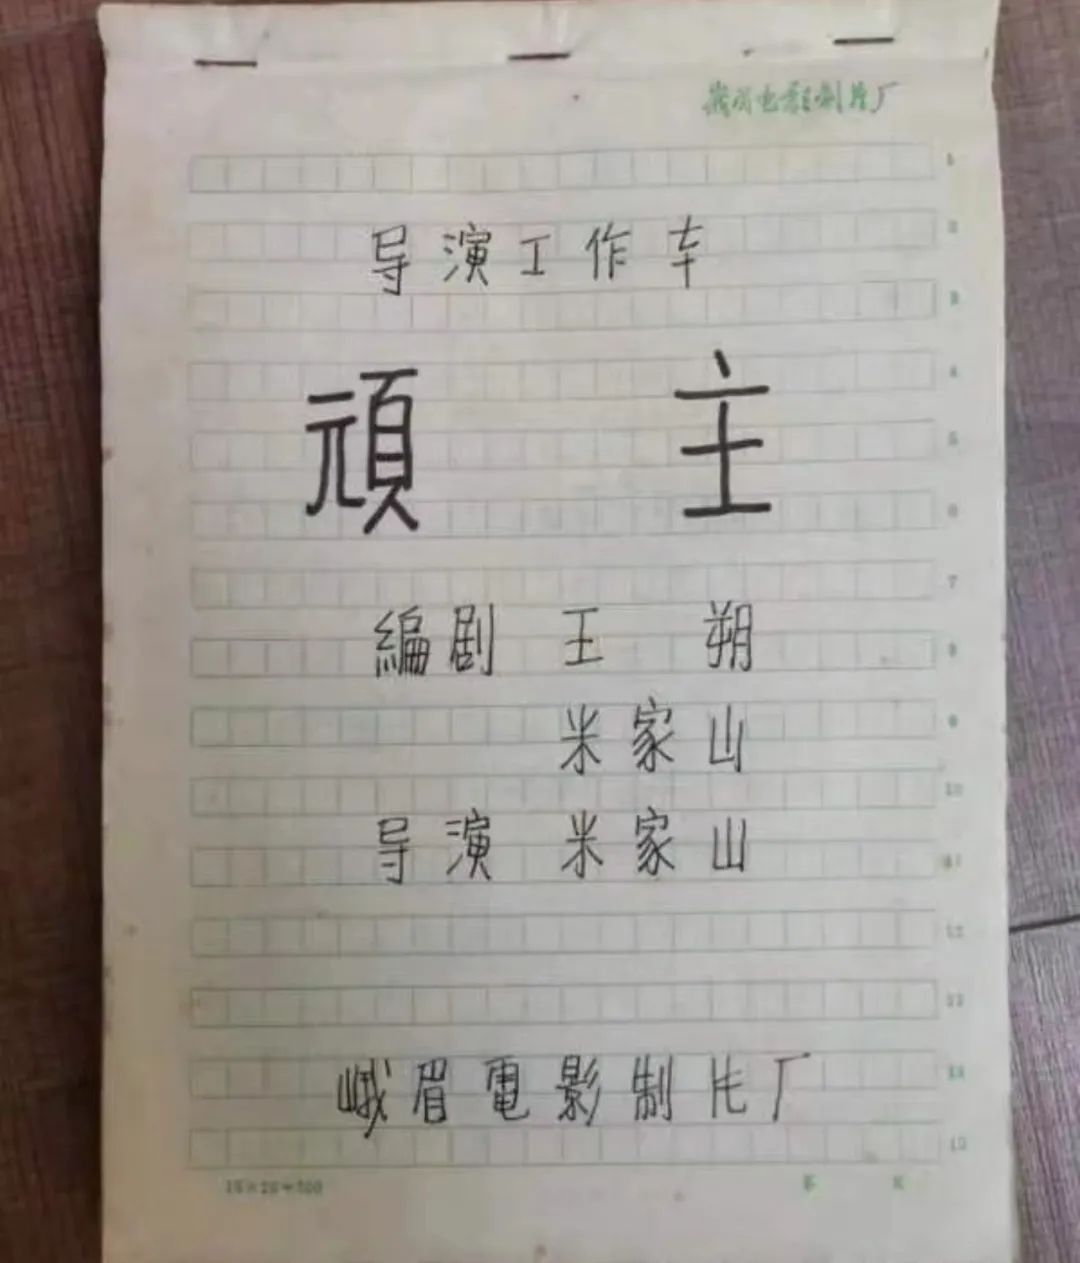 峨眉电影制片厂
1
导演工作本
2
3
4
頑主
5
6
7
編剧 王 朔
8
米家山
9
10
导演 米家山
11
12
13
峨眉電影制片厂
14
15
15×20=300 第 页